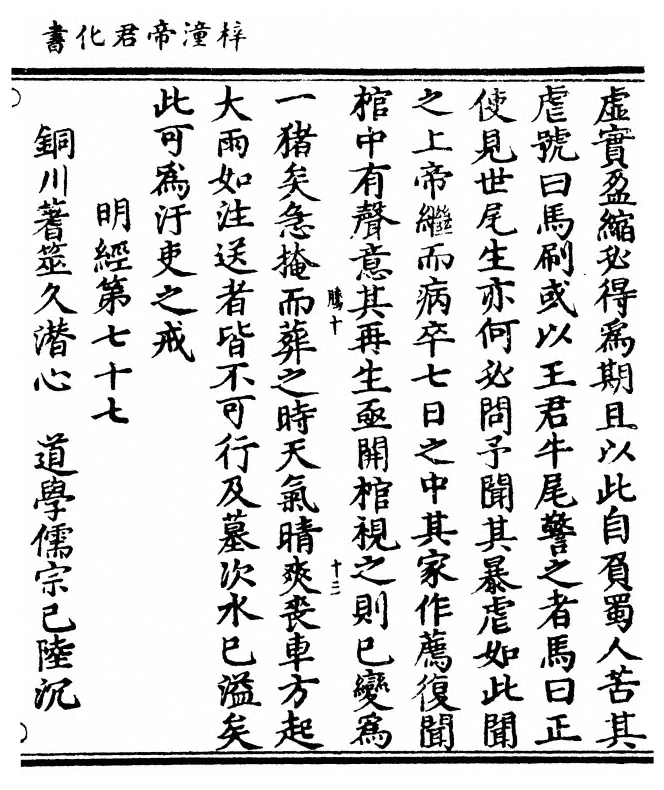 梓潼帝君化書
虛實盈縮必得為期且以此自負蜀人苦其
虐號曰馬刷或以王君牛尾警之者馬曰正
使見世尾生亦何必問予聞其暴虐如此聞
之上帝繼而病卒七日之中其家作薦復聞
棺中有聲意其再生亟開棺視之則已變為
騰十
十三
一猪矣急掩而葬之時天氣晴爽喪車方起
大雨如注送者皆不可行及墓次水已溢矣
此可為汙吏之戒
明經第七十七
銅川蓍筮久潜心　道學儒宗已陸沉